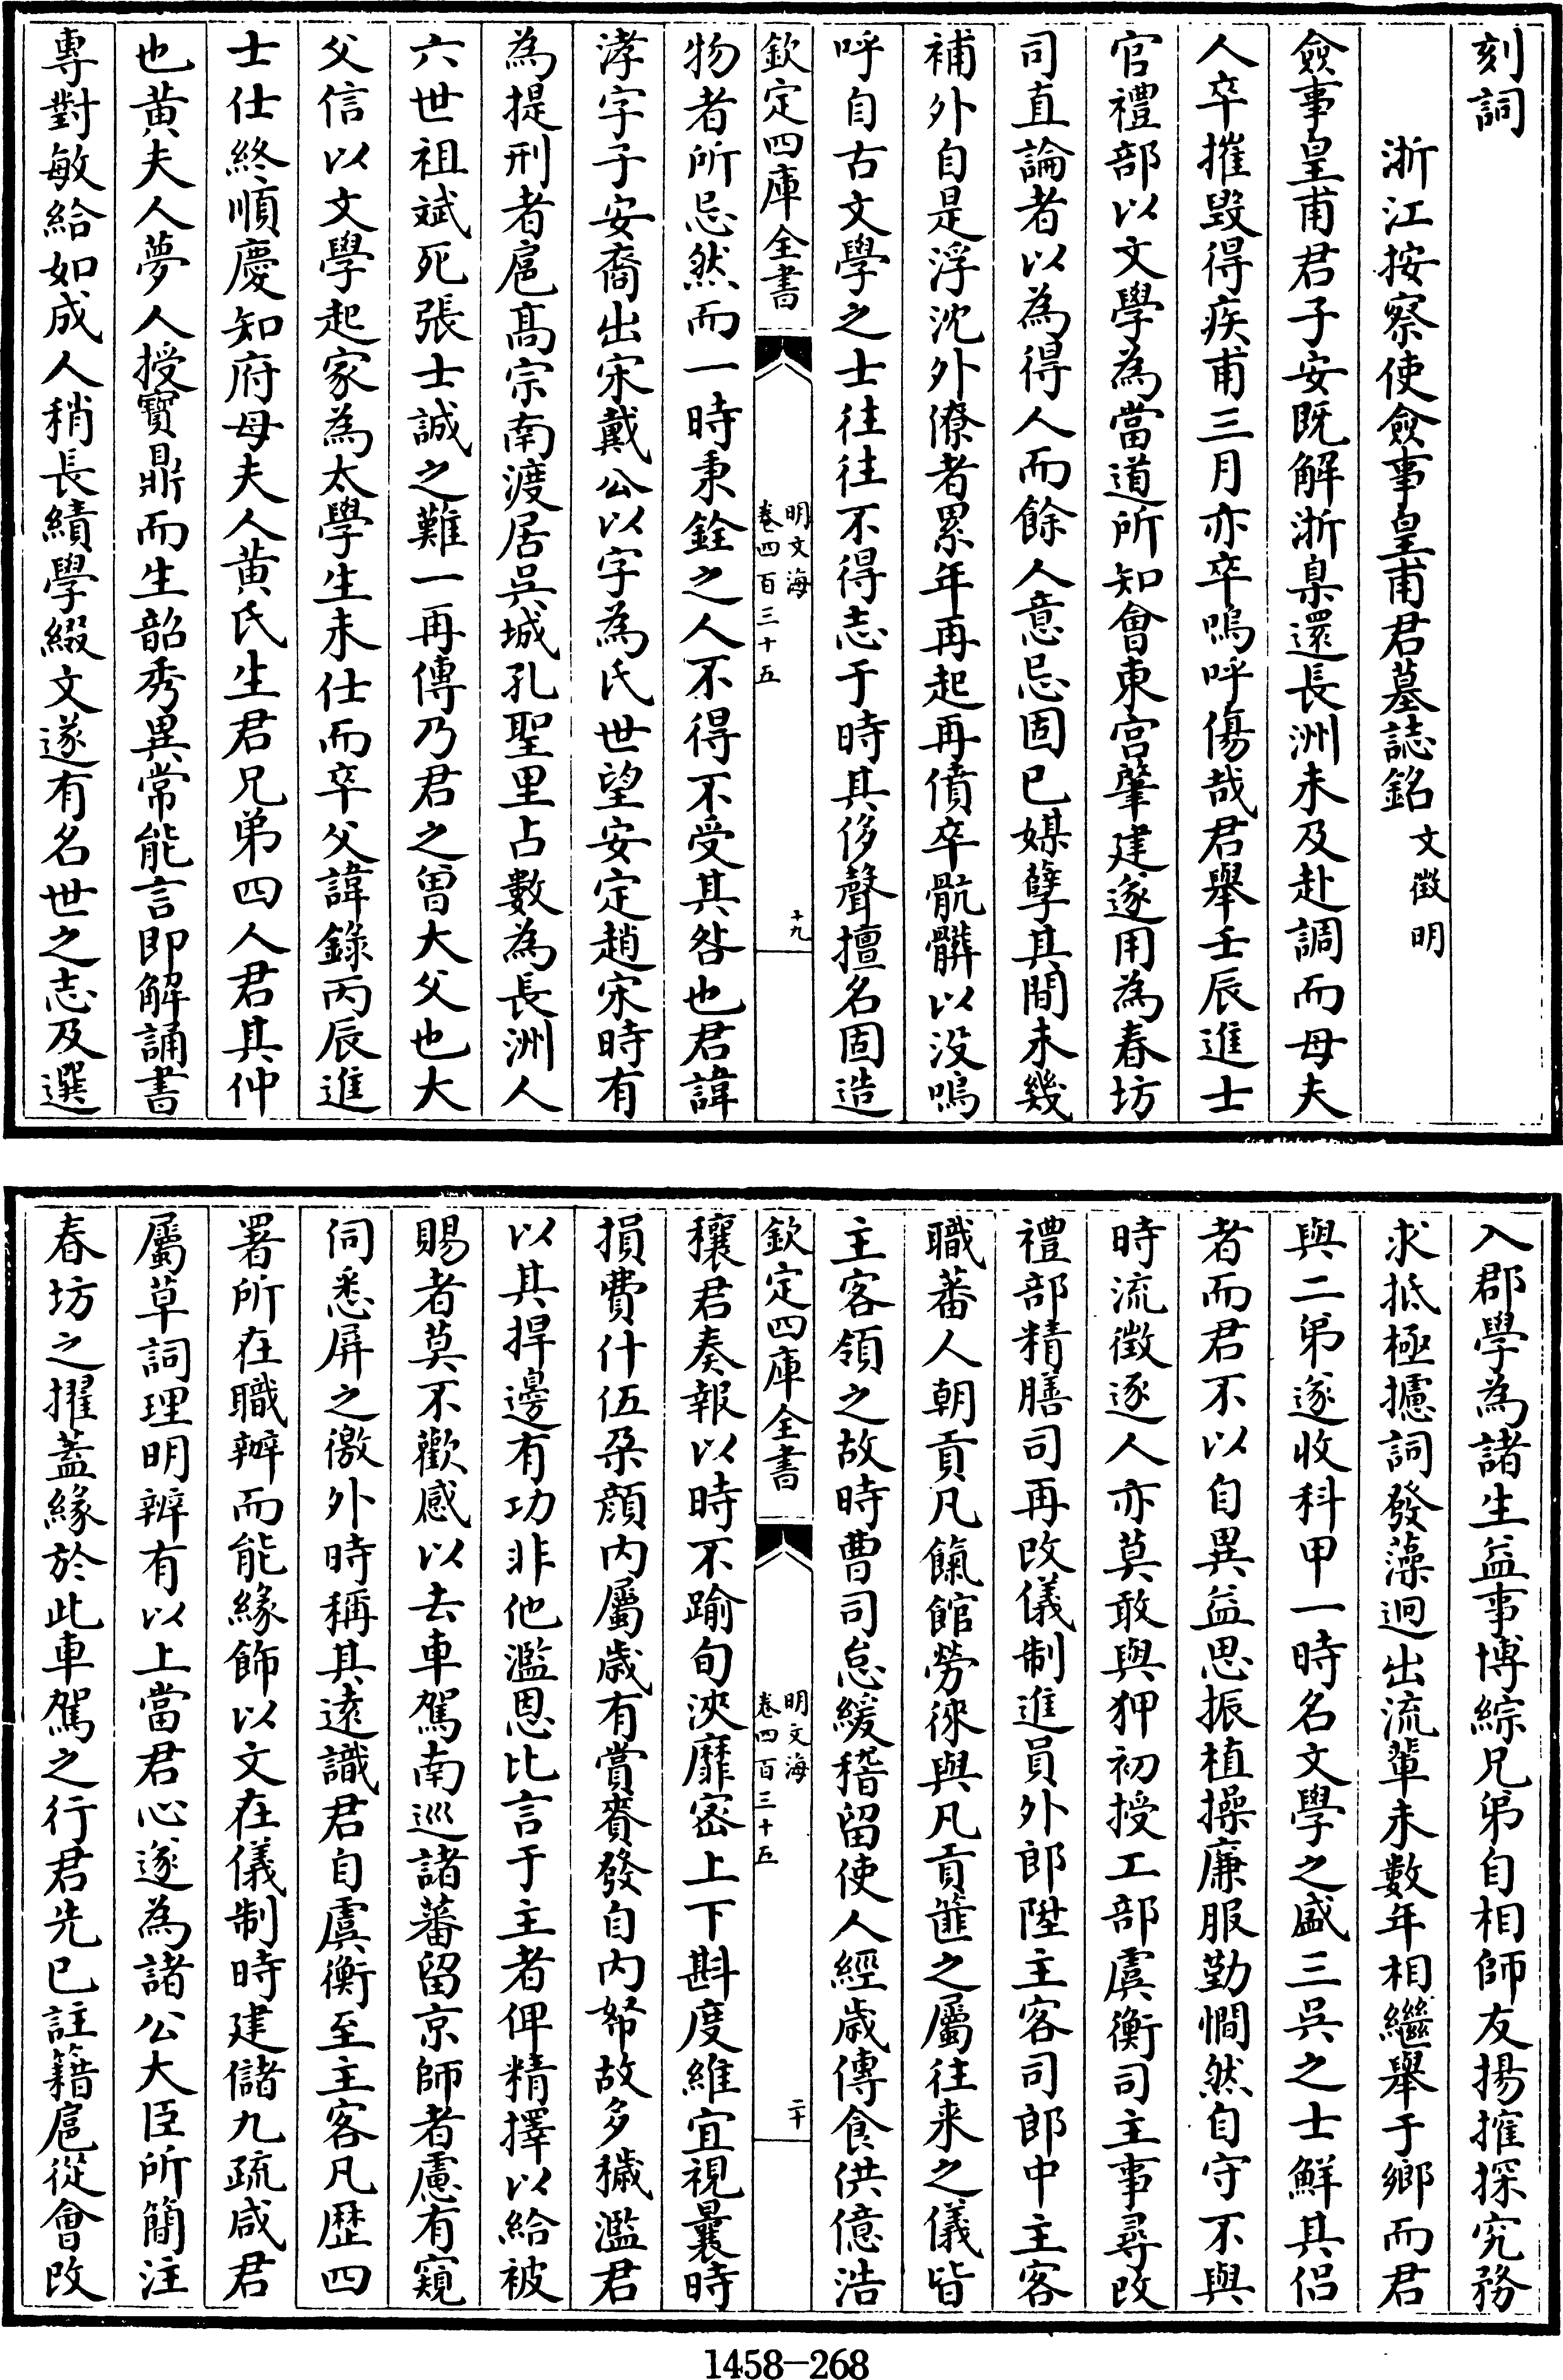 刻詞
浙江按察使僉事皇甫君墓誌銘 文徵明
僉事皇甫君子安既解浙臬還長洲未及赴調而母夫
人卒摧毀得疾甫三月亦卒嗚呼傷哉君舉壬辰進士
官禮部以文學為當道所知會東宮肇建遂用為春坊
司直論者以為得人而餘人意忌固已媒孽其間未幾
補外自是浮沈外僚者累年再起再僨卒骯髒以沒嗚
呼自古文學之士往往不得志于時其侈聲擅名固造
欽定四庫全書
明文海
卷四百三十五
十九
物者所忌然而一時秉銓之人不得不受其咎也君諱
涍字子安裔出宋戴公以字為氏世望安定趙宋時有
為提刑者扈高宗南渡居吳城孔聖里占數為長洲人
六世祖斌死張士誠之難一再傳乃君之曾大父也大
父信以文學起家為太學生未仕而卒父諱錄丙辰進
士仕終順慶知府母夫人黃氏生君兄弟四人君其仲
也黃夫人夢人授寶鼎而生韶秀異常能言即解誦書
專對敏給如成人稍長績學綴文遂有名世之志及選
入郡學為諸生益事博綜兄弟自相師友揚搉探究務
求抵極攄詞發藻迥出流輩未數年相繼舉于鄉而君
與二弟遂收科甲一時名文學之盛三吳之士鮮其侶
者而君不以自異益思振植操廉服勤憪然自守不與
時流徵逐人亦莫敢與狎初授工部虞衡司主事尋改
禮部精膳司再改儀制進員外郎陞主客司郎中主客
職蕃人朝貢凡餼館勞徠與凡貢篚之屬往來之儀皆
主客領之故時曹司怠緩稽留使人經歲傳食供億浩
欽定四庫全書
明文海
卷四百三十五
二十
穰君奏報以時不踰旬浹靡密上下斟度維宜視曩時
損費什伍朶顏內屬歲有賞賚發自內帑故多穢濫君
以其捍邊有功非他濫恩比言于主者俾精擇以給被
賜者莫不歡感以去車駕南巡諸蕃留京師者慮有窺
伺悉屏之徼外時稱其遠識君自虞衡至主客凡歷四
署所在職辦而能緣飾以文在儀制時建儲九疏咸君
屬草詞理明辨有以上當君心遂為諸公大臣所簡注
春坊之擢蓋緣於此車駕之行君先已註籍扈從會改
1458-268